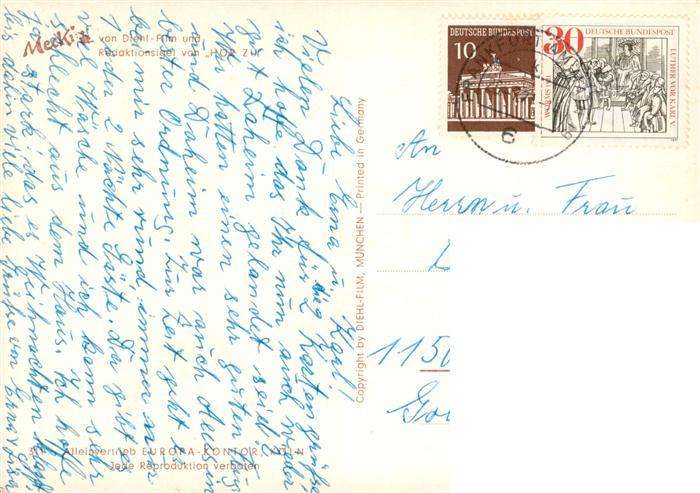 Mecki von Diehl-Film und
Redaktionsigel von „HÖR ZU"
Liebe Erna u. Karl!
Vielen Dank für die Karten grüße
ich hoffe das Ihr nun auch wieder
gut Daheim gelandet seid.
Wir hatten einen sehr guten
und Daheim war auch alles in
bester Ordnung. Zur Zeit geht es
bei mir sehr rund, immer nur
1 oder 2 Nächte Gäste. Da gibt es
viel Wäsche und ich kann sehr
schlecht aus dem Haus. Ich hoffe
stark, das es Weihnachten klappt
Bis dahin viele liebe Grüße von
311 Alleinvertrieb EUROPA-KONTOR, KÖLN
Jede Reproduktion verboten
Copyright by DIEHL-FILM, MÜNCHEN — Printed in Germany
DEUTSCHE BUNDESPOST
10
30
DEUTSCHE BUNDESPOST
LUTHER VOR KARL V.
WORMS 1521
FRANKFURT
An
Herrn u. Frau
115